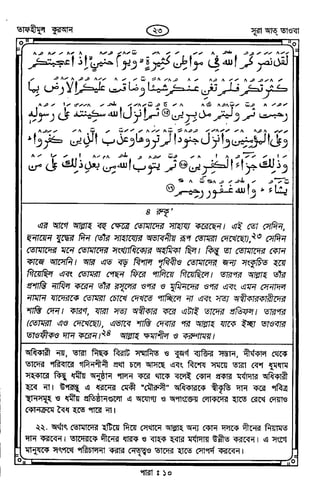 তাফহীমুল কুরআন ২৩ সূরা আত্ তাওবা
لَقَدْ نَصَرَكُمُ اللهُ فِي مَوَاطِنَ كَثِيرَةٍ ۙ وَيَوْمَ حُنَيْنٍ ۙ إِذْ أَعْجَبَتْكُمْ
كَثْرَتُكُمْ فَلَمْ تُغْنِ عَنْكُمْ شَيْئًا وَضَاقَتْ عَلَيْكُمُ الْأَرْضُ بِمَا
رَحُبَتْ ثُمَّ وَلَّيْتُمْ مُدْبِرِينَ ثُمَّ أَنْزَلَ اللهُ سَكِينَتَهُ عَلَى رَسُولِهِ
وَعَلَى الْمُؤْمِنِينَ وَأَنْزَلَ جُنُودًا لَمْ تَرَوْهَا وَعَذَّبَ الَّذِينَ كَفَرُوا ۚ
وَذَلِكَ جَزَاءُ الْكَافِرِينَ ثُمَّ يَتُوبُ اللهُ مِنْ بَعْدِ ذَلِكَ عَلَى مَنْ
يَشَاءُ ۗ وَاللهُ غَفُورٌ رَحِيمٌ
৪ রুকূ'
এর আগে আল্লাহ বহু ক্ষেত্রে তোমাদের সাহায্য করেছেন। এই তো সেদিন,
হুনায়েন যুদ্ধের দিন (তাঁর সাহায্যের অভাবনীয় রূপ তোমরা দেখেছো),২৩ সেদিন
তোমাদের মনে তোমাদের সংখ্যাধিক্যের অহমিকা ছিল। কিন্তু তা তোমাদের কোন
কাজে আসেনি। আর এত বড় বিশাল পৃথিবীও তোমাদের জন্য সংকুচিত হয়ে
গিয়েছিল এবং তোমরা পেছন ফিরে পালিয়ে গিয়েছিলে। তারপর আল্লাহ তাঁর
প্রশান্তি নাযিল করেন তাঁর রসূলের ওপর ও মুমিনদের ওপর এবং এমন সেনাদল
নামান যাদেরকে তোমরা চোখে দেখতে পাচ্ছিলে না এবং সত্য অস্বীকারকারীদের
শাস্তি দেন। কারণ, যারা সত্য অস্বীকার করে এটাই তাদের প্রতিফল। তারপর
(তোমরা এও দেখেছো), এভাবে শাস্তি দেবার পর আল্লাহ যাকে ইচ্ছা তাওবার
তাওফীকও দান করেন।২৪ আল্লাহ ক্ষমাশীল ও করুণাময়।
অধিকারী নয়, তারা নিছক বিরাট সম্মানিত ও বুজর্গ ব্যক্তির সন্তান, দীর্ঘকাল থেকে
তাদের পরিবারে গদিনশীনী প্রথা চলে আসছে এবং বিশেষ সময়ে তারা বেশ ধুমধাম
সহকারে কিছু ধর্মীয় অনুষ্ঠান পালন করে থাকে বলেই কোন প্রকার মর্যাদার অধিকারী
হবে না। উপরন্তু এ ধরনের মেকী "মৌরুসী" অধিকারকে স্বীকৃতি দান করে পবিত্র
স্থানসমূহ ও ধর্মীয় প্রতিষ্ঠানগুলো এ অযোগ্য ও অপাংক্তেয় লোকদের হাতে রেখে দেয়াও
কোনক্রমে বৈধ হতে পারে না।
২২. অর্থাৎ তোমাদের হটিয়ে দিয়ে সেখানে আল্লাহ অন্য কোন দলকে দীনের নিয়ামত
দান করবেন। তাদেরকে দীনের ধারক ও বাহক হবার মর্যাদায় উন্নীত করবেন। এ সংগে
মানুষকে সৎপথে পরিচালনা করার নেতৃত্বও তাদের হাতে সোপর্দ করবেন।
পারা : ১০